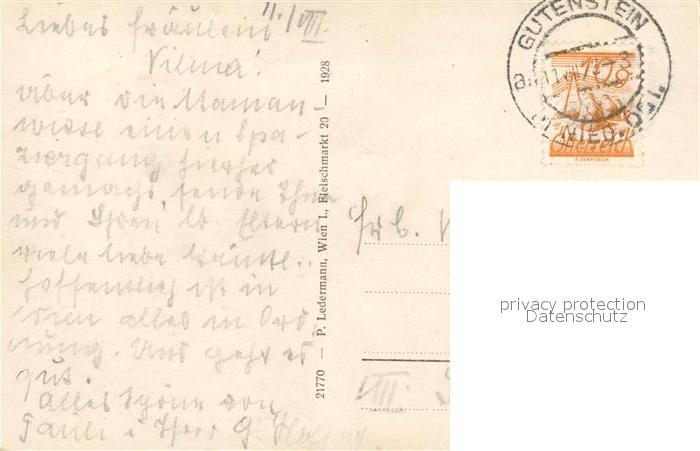 Liebes Fräulein 11./VIII.
Vilma!
Über die Maman-
wiese einen Spa-
ziergang hierher
gemacht, sende Ihnen
und Ihren lb. Eltern
viele liebe
Hoffentlich ist in
Wien alles in Ord-
nung. Uns geht es
gut.
Alles Schöne von
Pauli u. Ihrer G.
21770 — P. Ledermann, Wien I., Fleischmarkt 20 — 1928
GUTENSTEIN
NIED. ÖST.
Frl.
VIII.
privacy protection
Datenschutz